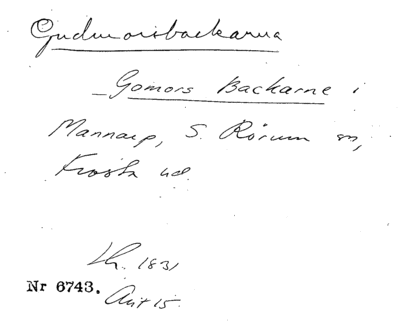 Gudmorsbackarna
Gomors Backarne i
Mannarp, S. Rörum sn,
Frosta hd.
Lh. 1831
Nr 6743.
Akt 15.